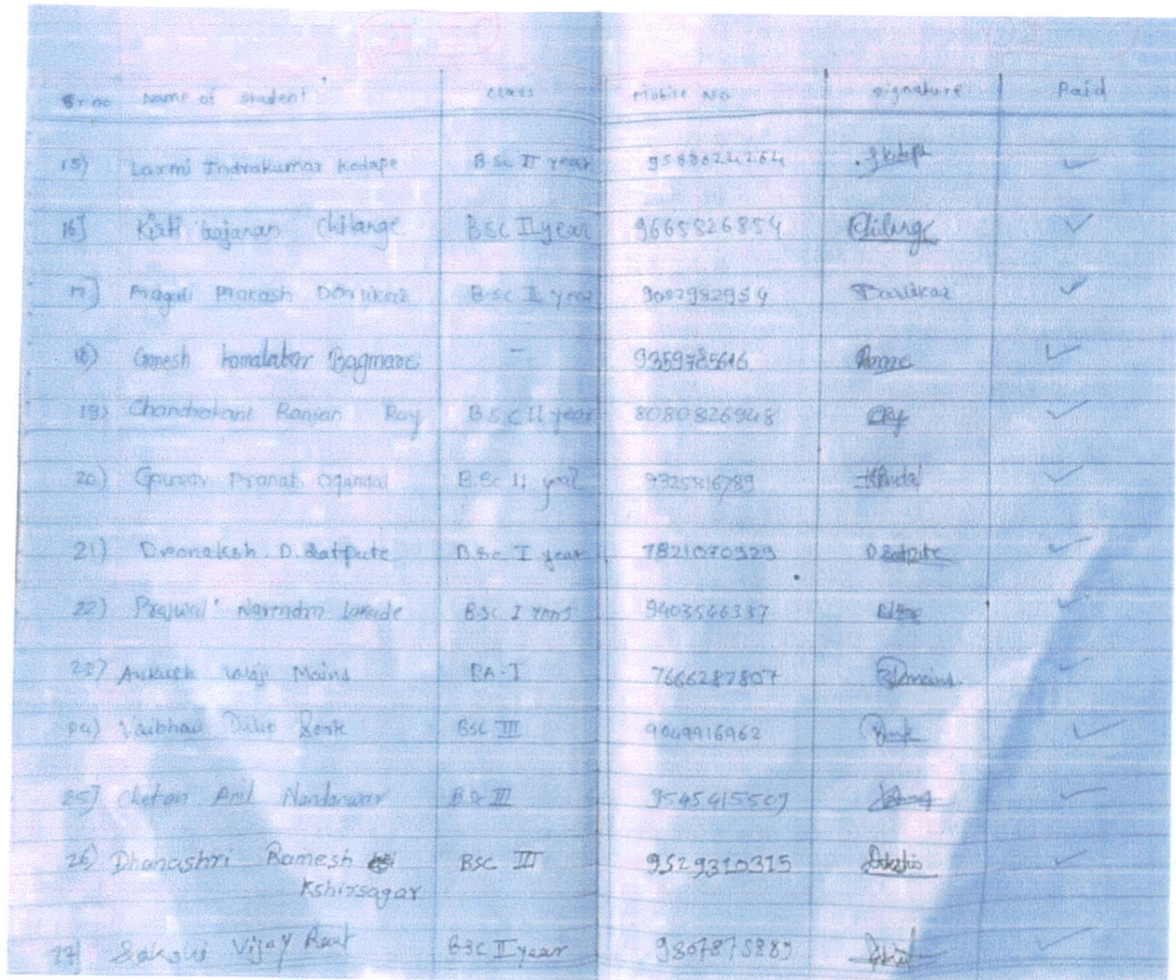 Sr no Name of student Class Mobile No Signature Paid
15) Laxmi Indrakumar Kodape BSc II year 9588624264
16] Kirti Gajanan Chilange BSc II year 9665826854 Chilange
17) Pragati Prakash Dorlikar BSc II year 9082982954 Dorlikar
18) Ganesh Kamalakar Bagmare - 9359785616
19) Chandrakant Ranjan Ray B.S.C II year 8080826948
20) Gaurav Pranat B.Sc II year 9325816789
21) Dronaksh D. Satpute B.Sc I year 7821070929 D Satpute
22) Prajwal Narendra BSc I 9403546337
23) Ankush Mains BA-I 7666287807
24) Vaibhav BSC III 9049916962
25] Chetan Anil Nandanwar BSC III 9545415509
26) Dhanashri Ramesh BSC III 9529310315
Kshirsagar
27] Vijay Raut BSC II year 9307875889